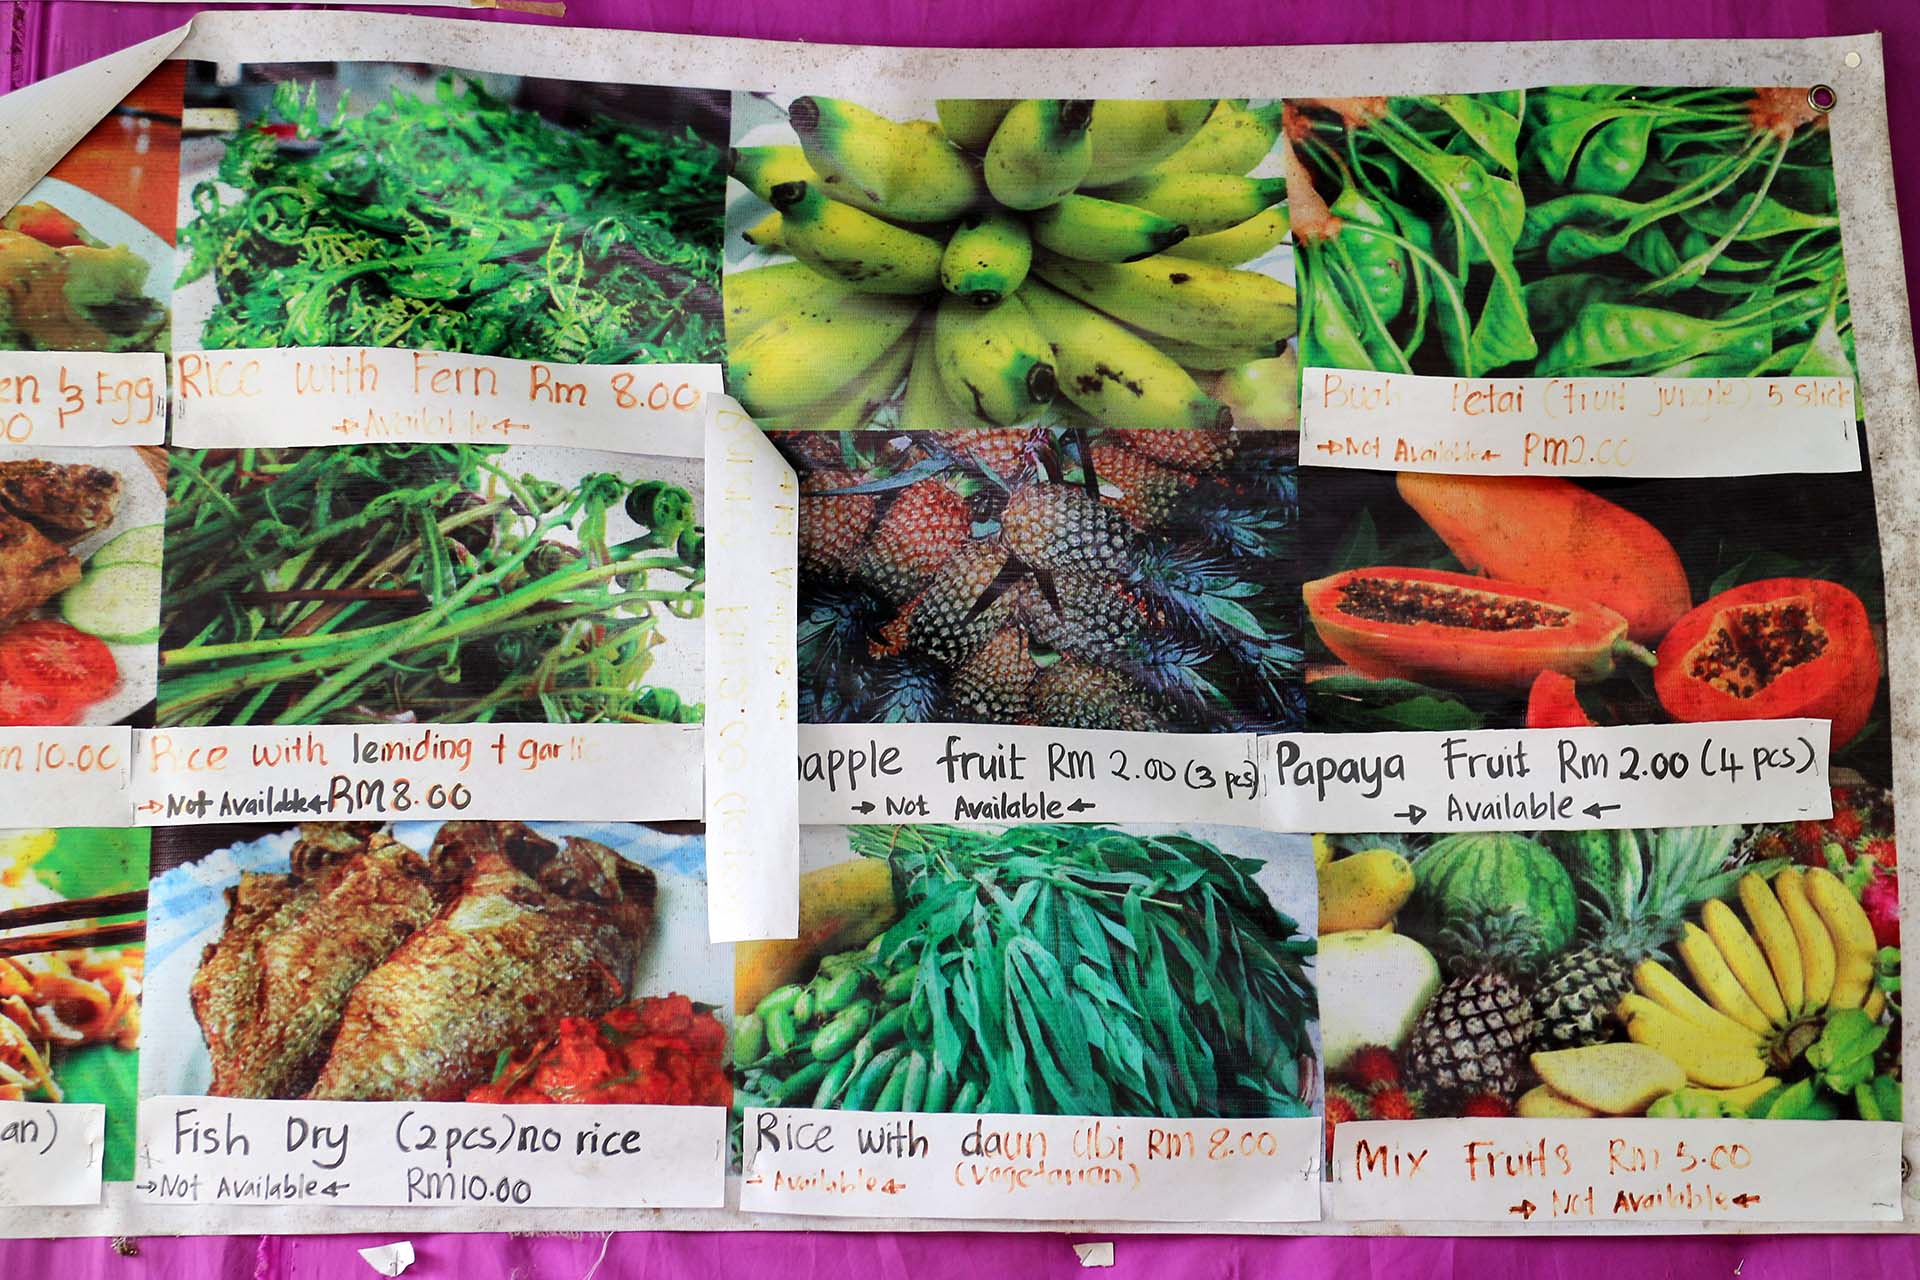 en Egg
00
Rice with Fern Rm 8.00
Available
Buah Petai (fruit jungle) 5 Stick
Not Available RM2.00
m 10.00
Rice with lemiding + garlic
Not Available RM8.00
apple fruit Rm 2.00 (3 pcs)
Not Available
Papaya Fruit Rm 2.00 (4 pcs)
Available
an)
Fish Dry (2pcs) no rice
Not Available RM10.00
Rice with daun Ubi RM 8.00
Available (Vegetarian)
Mix Fruits Rm 5.00
Not Available